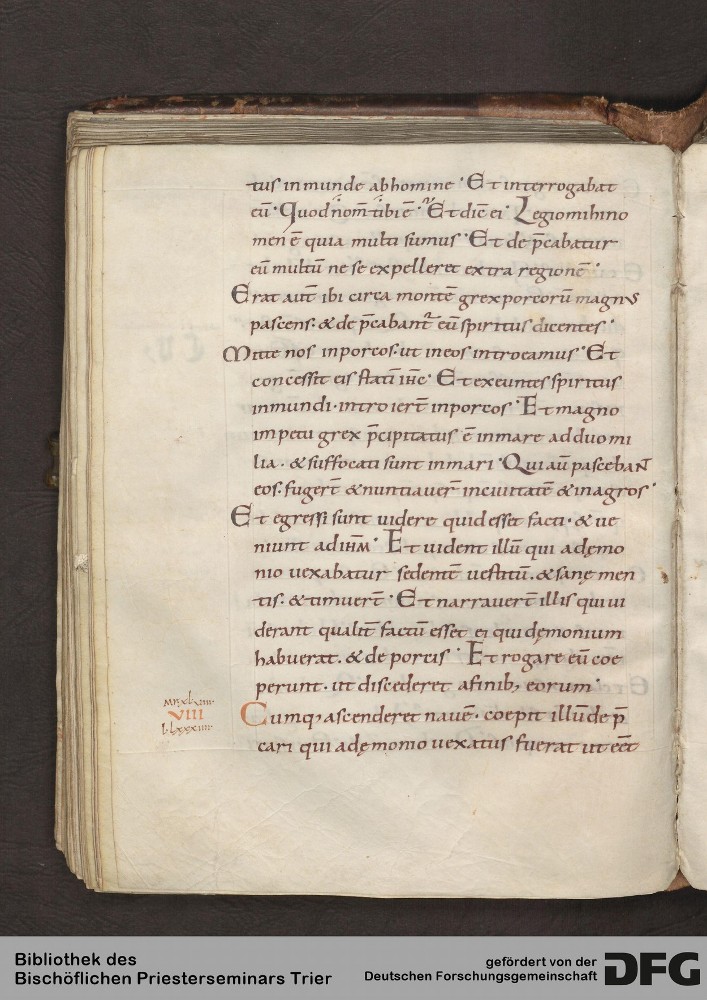 tus inmunde abhomine · Et interrogabat
eū · Quod nom̄ tibi ē · Et dic̄ ei · Legio mihi no
men ē quia multi sumus · Et dep̄cabatur
eū multū ne se expelleret extra regionē ·
Erat aut̄ ibi circa montē grex porcorū magnus
pascens · & dep̄cabant̄ eū spiritus dicentes ·
Mitte nos in porcos · ut in eos introeamus · Et
concessit eis statī ihc · Et exeuntes spiritus
inmundi · introiert̄ in porcos · Et magno
impetu grex p̄cipitatus ē in mare ad duo mi
lia · & suffocati sunt in mari · Qui aū pascebant
eos · fugert̄ & nuntiavert̄ in civitatē & in agros ·
Et egressi sunt videre quid esset facti · & ve
niunt ad ihm̄ · Et vident illū qui a dęmo
nio vexabatur sedentē vestitū · & sanę men
tis · & timuert̄ · Et narravert̄ illis qui vi
derant qualit̄ factū esset ei qui dęmonium
habuerat · & de porcis · Et rogare eū coe
perunt · ut discederet a finib; eorum ·
VIII
Cumq; ascenderet navē · coepit illū dep̄
l·lxxxiiii
cari qui a dęmonio vexatus fuerat ut eēt
Bibliothek des
Bischöflichen Priesterseminars Trier
gefördert von der
Deutschen Forschungsgemeinschaft
DFG